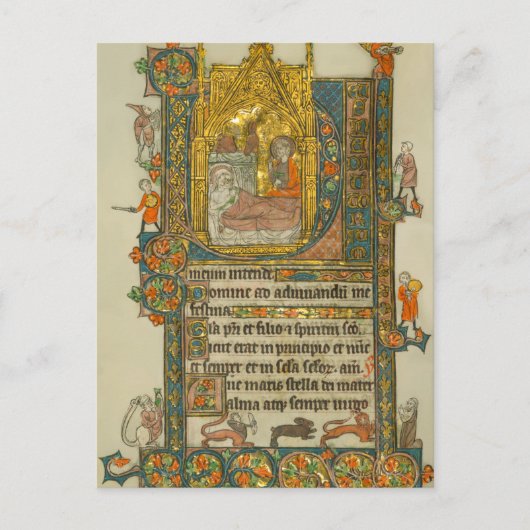 meum intende
Domine ad adiuuandū me
festina.
Gl̄a pr̄i et filio ⁊ spiritui sc̄o.
Sicut erat in principio et nūc
et semper et in sc̄la sc̄lor. am̄.
Aue maris stella dei mater
alma atqʒ semper uirgo